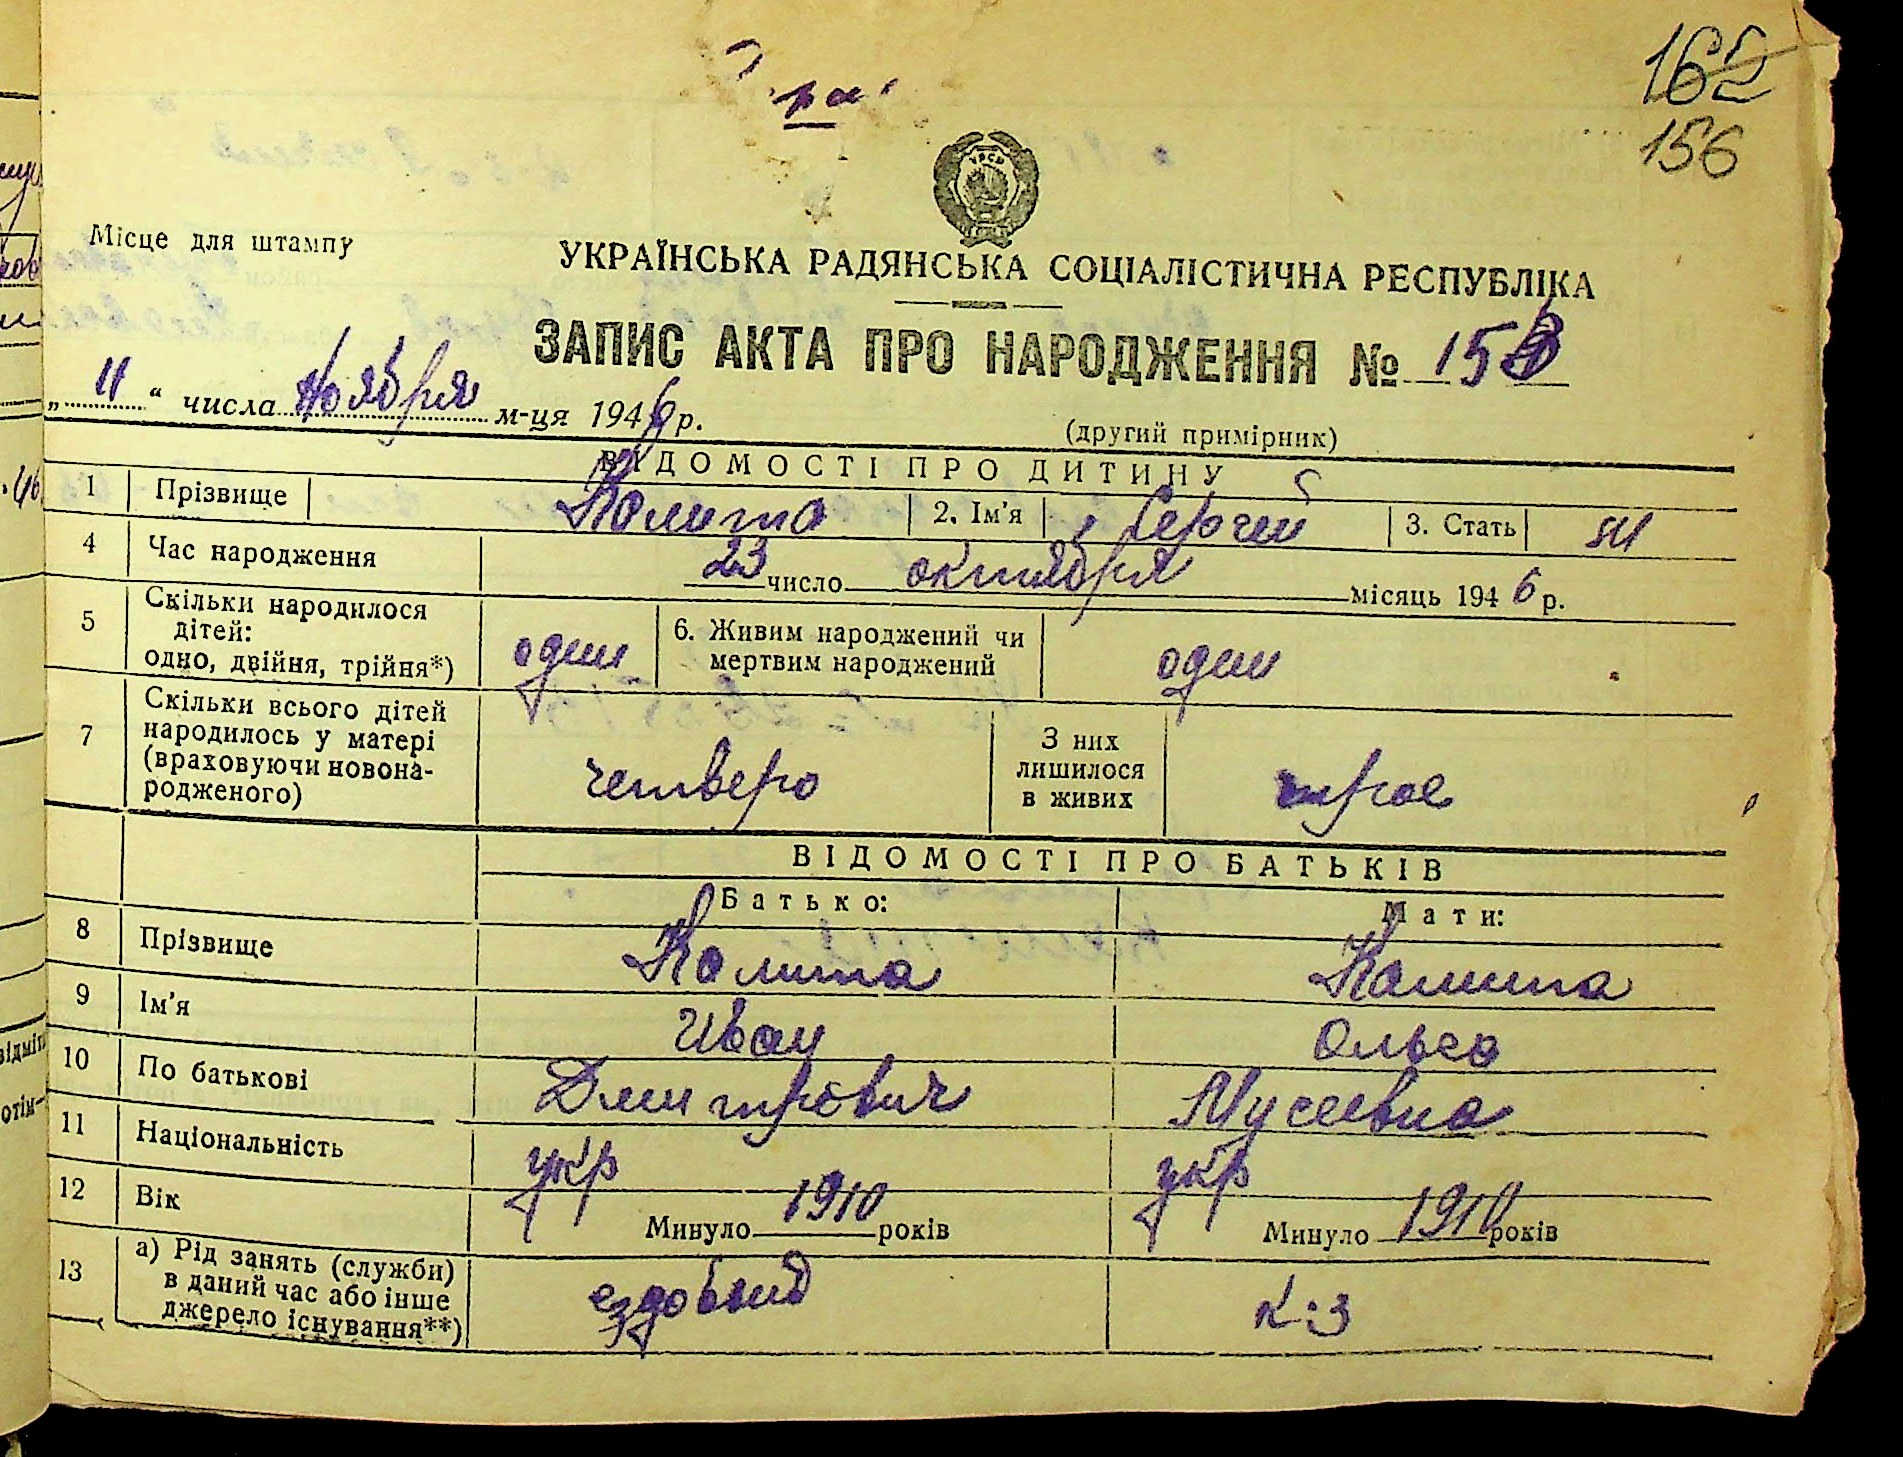 162
156
УРСР
Місце для штампу
УКРАЇНСЬКА РАДЯНСЬКА СОЦІАЛІСТИЧНА РЕСПУБЛІКА
ЗАПИС АКТА ПРО НАРОДЖЕННЯ № 156
„ 11 “ числа Ноября м-ця 1946 р.
(другий примірник)
ВІДОМОСТІ ПРО ДИТИНУ
1 Прізвище Калита 2. Ім'я Сергей 3. Стать м
4 Час народження 23 число октября місяць 1946 р.
5 Скільки народилося дітей: одно, двійня, трійня*) один 6. Живим народжений чи мертвим народжений один
7 Скільки всього дітей народилось у матері (враховуючи новона-родженого) четверо З них лишилося в живих трое
ВІДОМОСТІ ПРО БАТЬКІВ
Батько: Мати:
8 Прізвище Калита Калита
9 Ім'я Иван Ольга
10 По батькові Дмитрович Мусеевна
11 Національність укр укр
12 Вік Минуло 1910 років Минуло 1910 років
13 а) Рід занять (служби) в даний час або інше джерело існування**) ездовый к-з